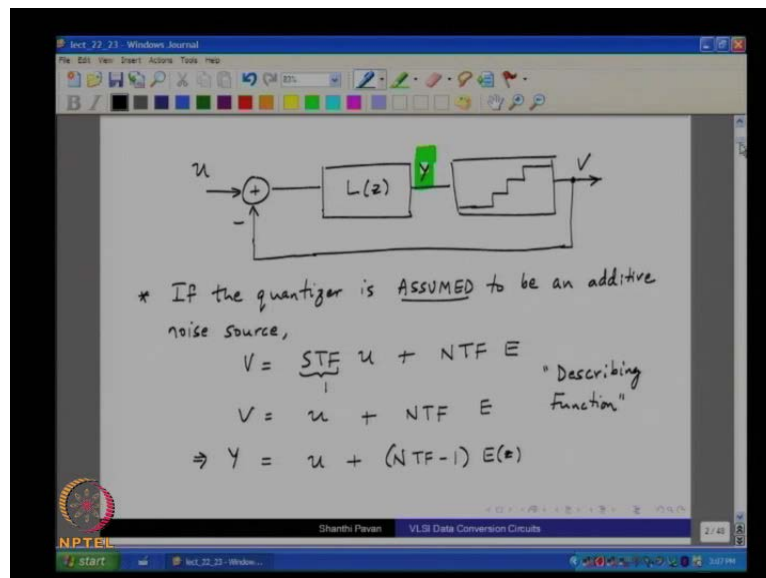 lect_22_23 - Windows Journal
File Edit View Insert Actions Tools Help
83%
B I
u + L(z) Y V
-
* If the quantizer is ASSUMED to be an additive
noise source,
V = STF u + NTF E
1
"Describing
Function"
V = u + NTF E
⇒ Y = u + (NTF-1) E(z)
Shanthi Pavan VLSI Data Conversion Circuits 2/40
NPTEL
start lect_22_23 - Window... 3:07 PM